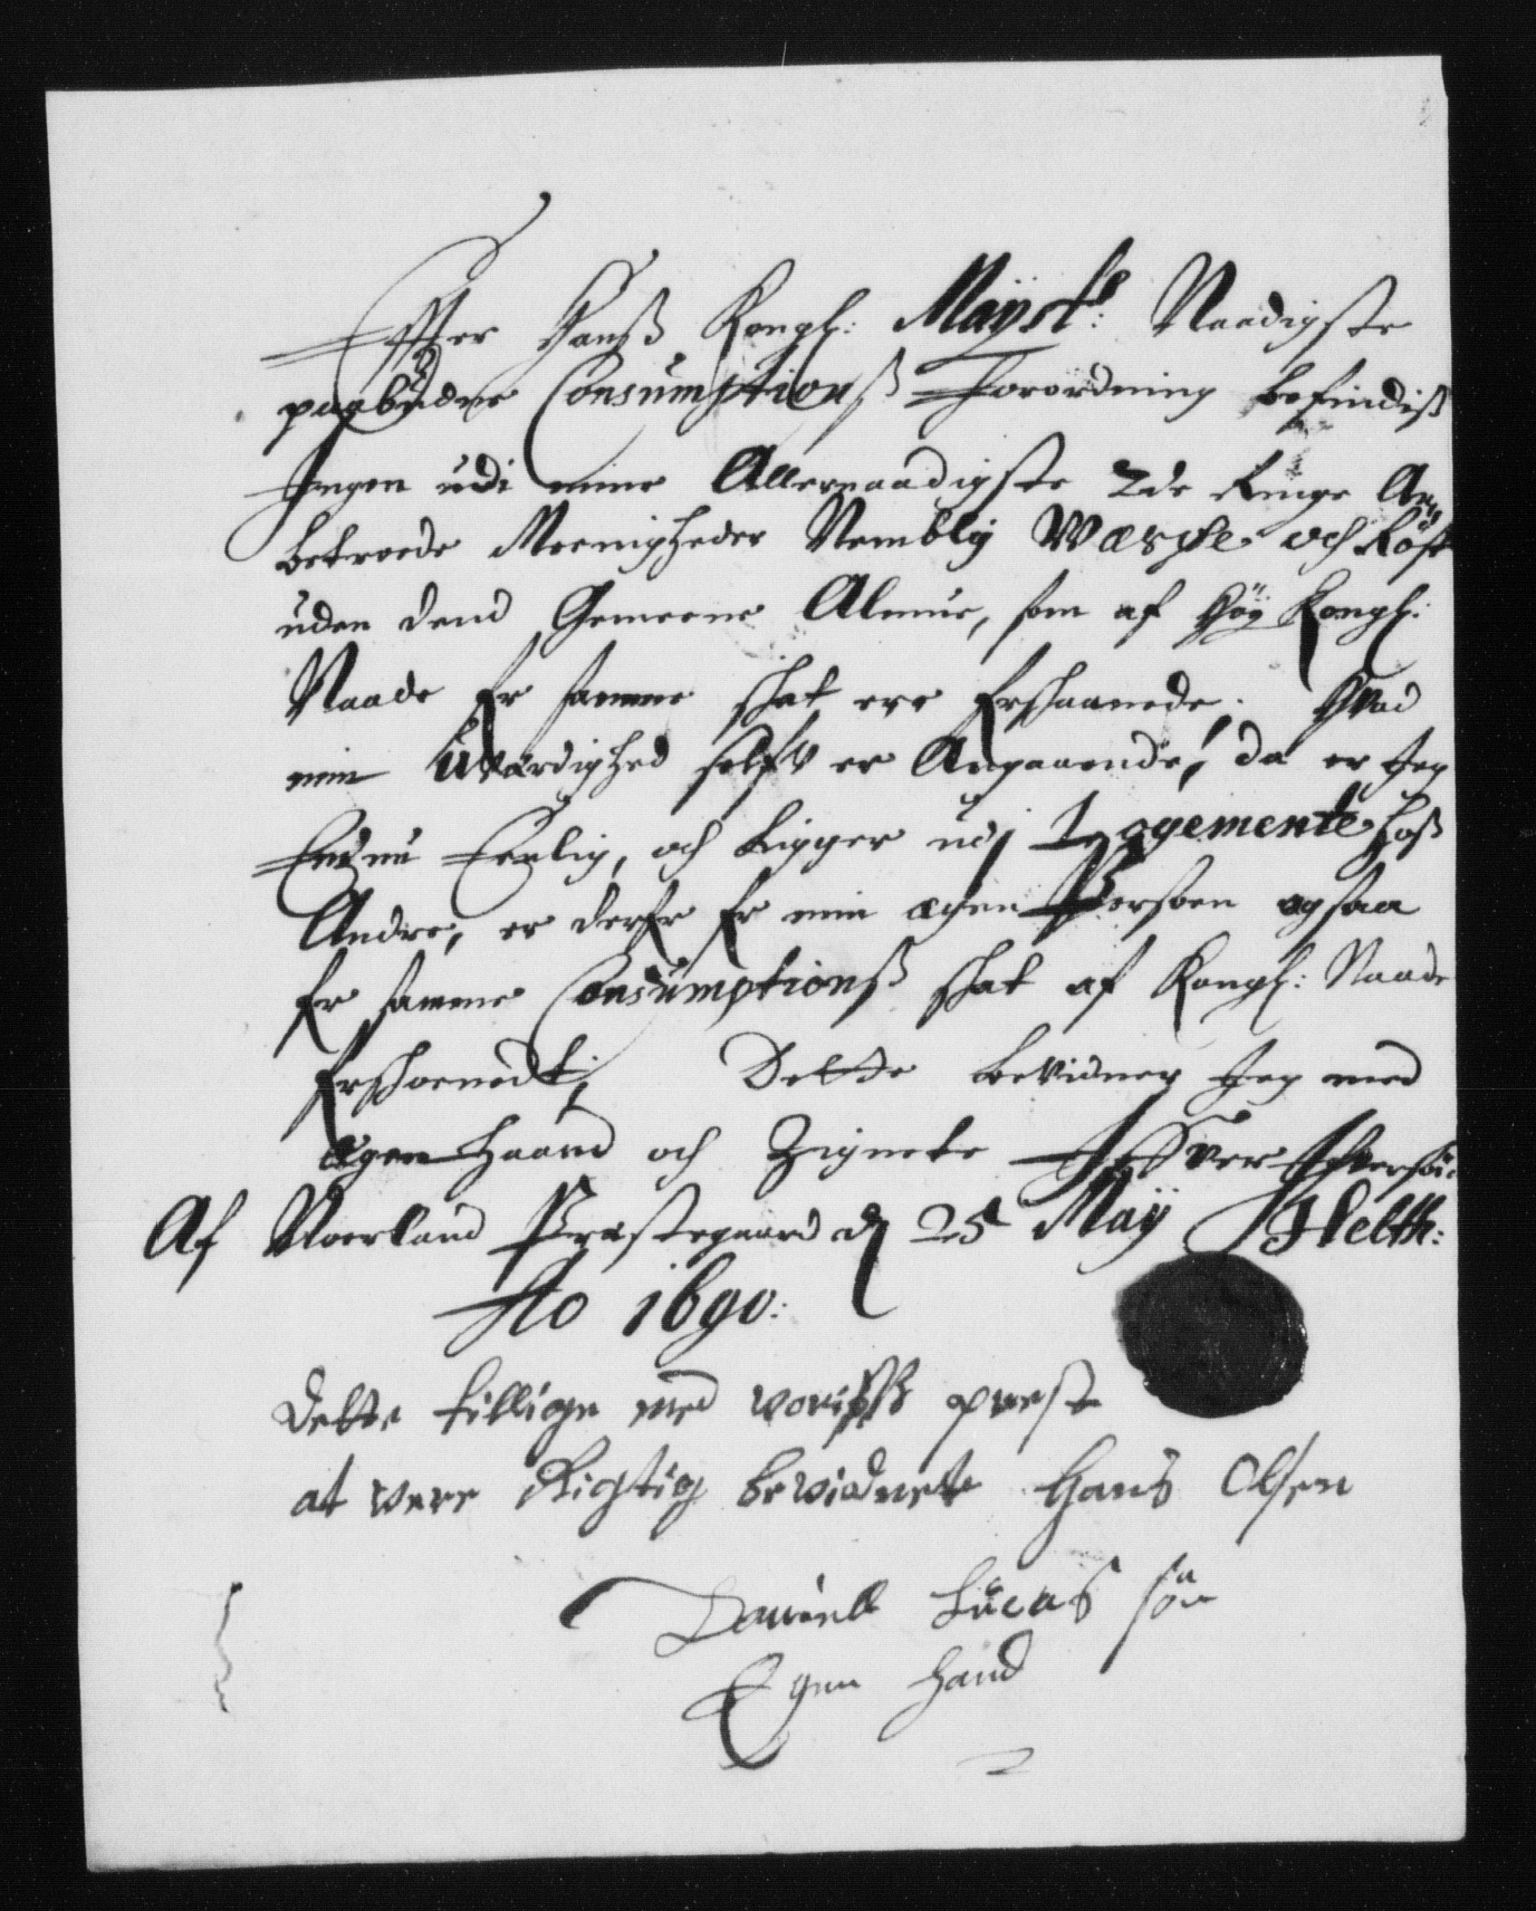 Effter Hanß Kongl: Mayst:s Naadigste
paabudne Consumptionß Forordning befindiß
Ingen udi mine Allernaadigste 2de Ringe An
betroede Meenigheder Nemblig Værøe och Røst
uden dend Gemeene Almue, som af Høy Kongl:
Naade for samme skat ere forskaanede. Hvad
min Uværdighed self er Angaaende, da er Jeg
Endnu Eenlig, och Ligger udj Logemente hoß
Andre, er derfor for min egen Persoen ogsaa
for samme Consumptionß skat af Kongl: Naade
forskoenedt; Dette bevidner Jeg med
egen Haand och Zignete Ifver Ifversøn
Af Noerland Præstegaard d 25 May Heltb:
Ao 1690:
Dette tillige med voriß preste
at vere Rigtig bevidnett Hans Olsen
Daniell Lucas søn
Egen hand